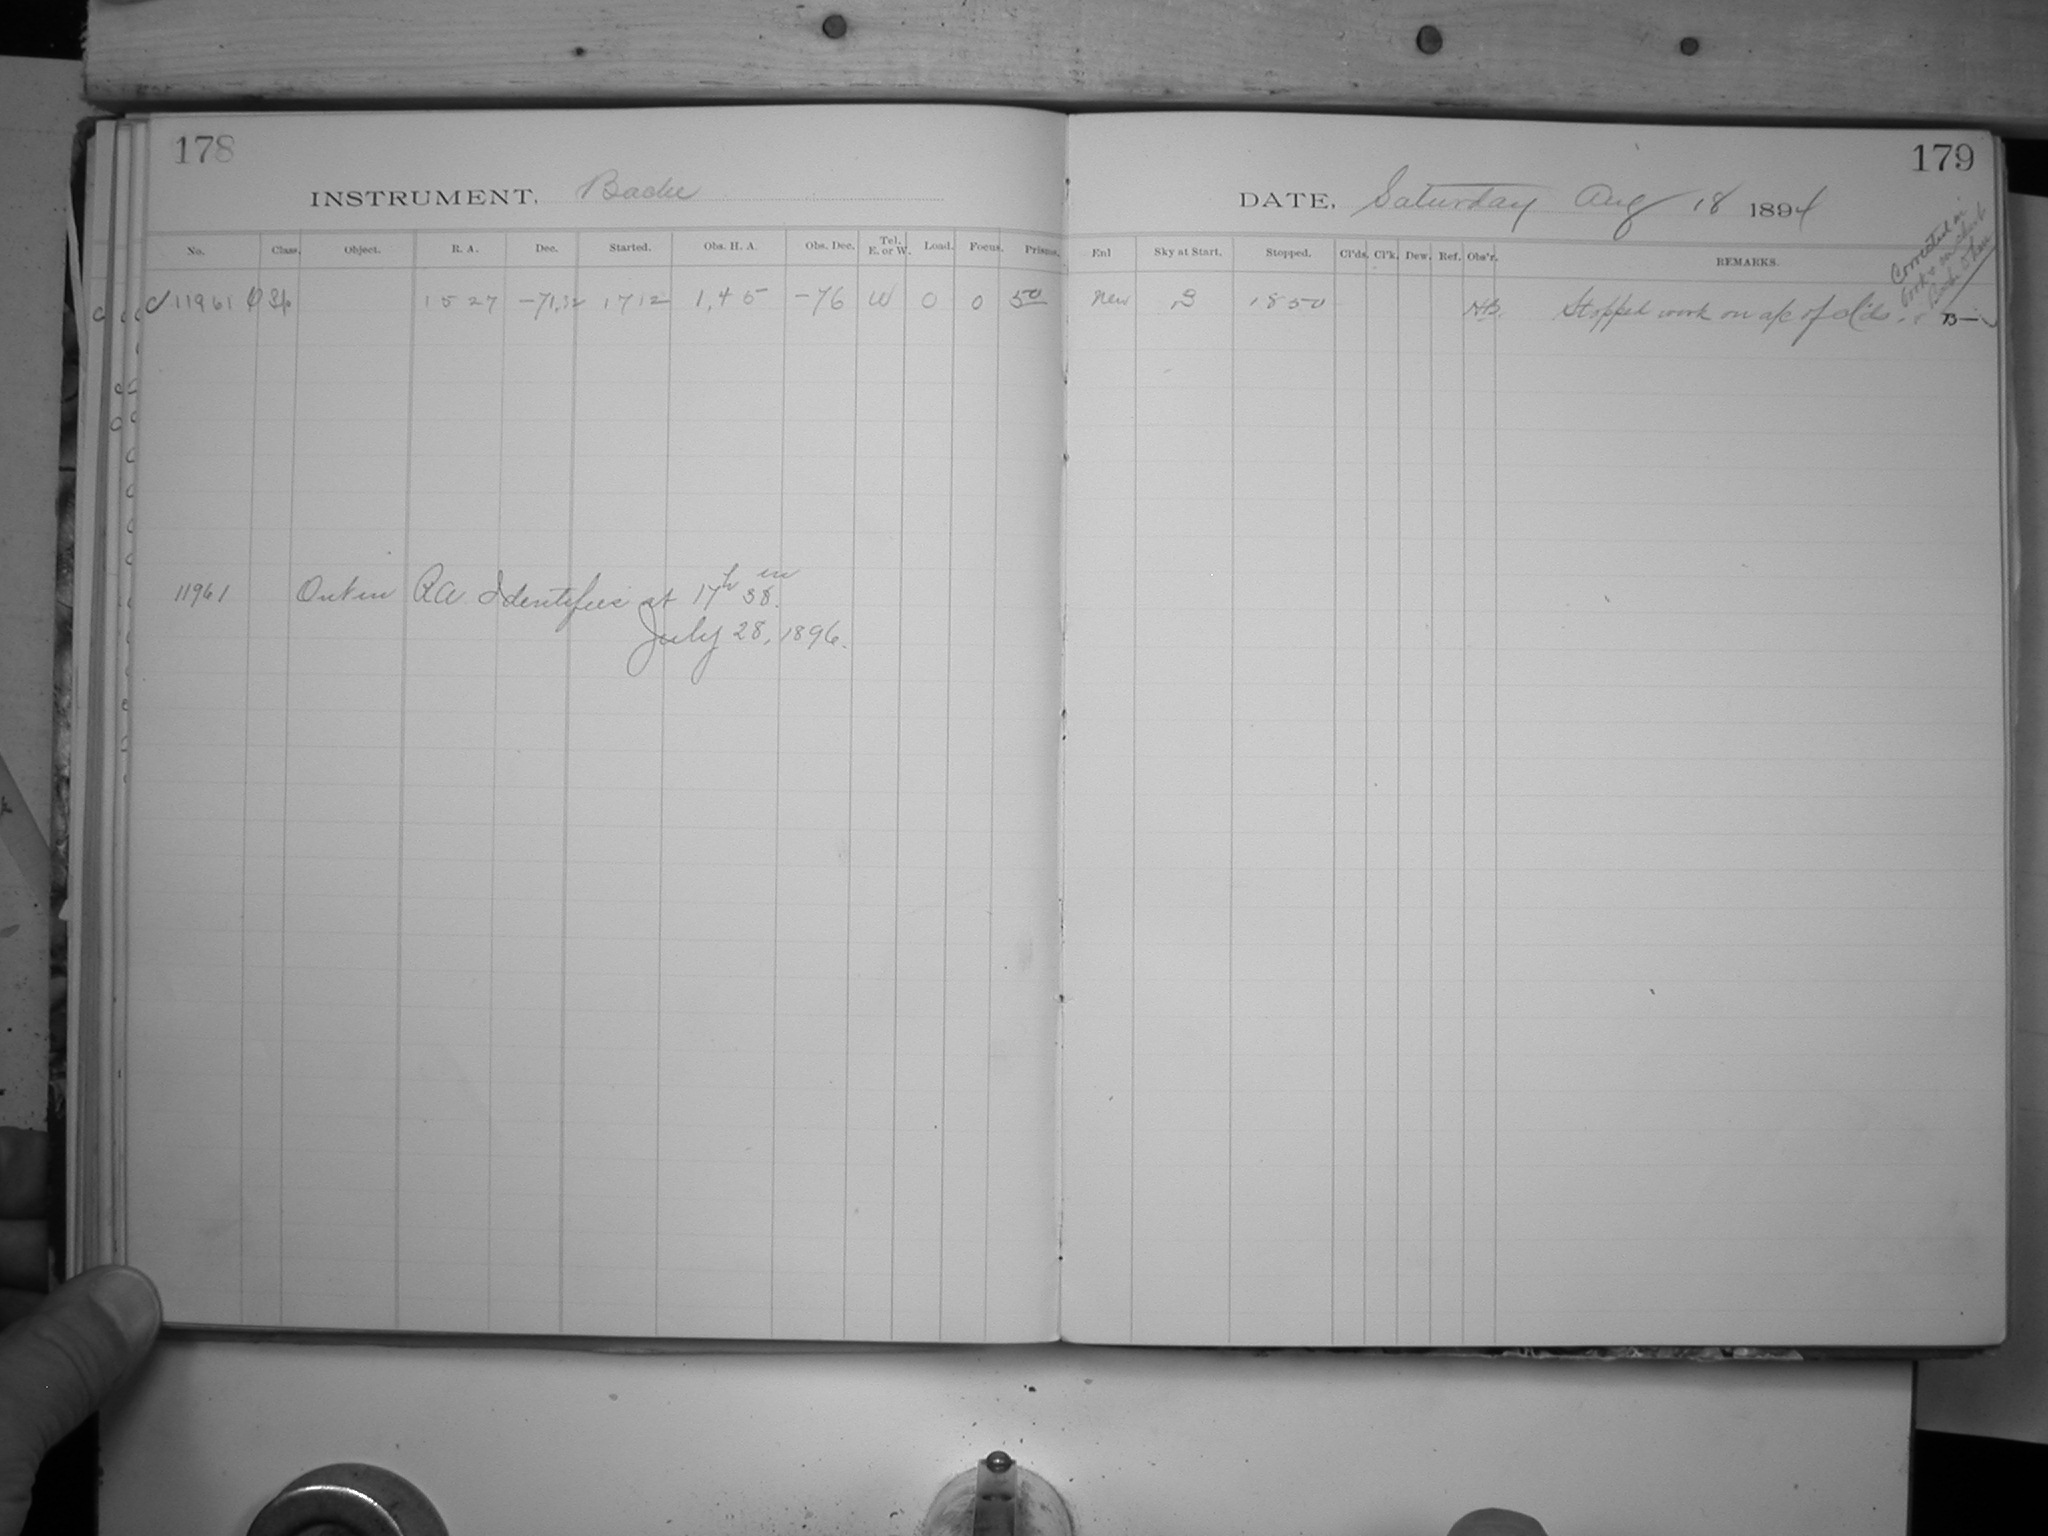 178
INSTRUMENT, Bache
No. Class. Object. R. A. Dec. Started. Obs. H. A. Obs. Dec. Tel. E. or W. Load. Focus. Prisms.
11961 Sp 15 27 -71,32 17 12 1,45 -76 W 0 0 50
11961 Out in RA Identifies at 17h 38m.
July 28, 1896.
179
DATE, Saturday Aug 18 1894
Enl Sky at Start. Stopped. Cl'ds. Cl'k. Dew. Ref. Obs'r. REMARKS.
New S 18 50 HB. Stopped work on a/c of clds.
Corrected in
book
B